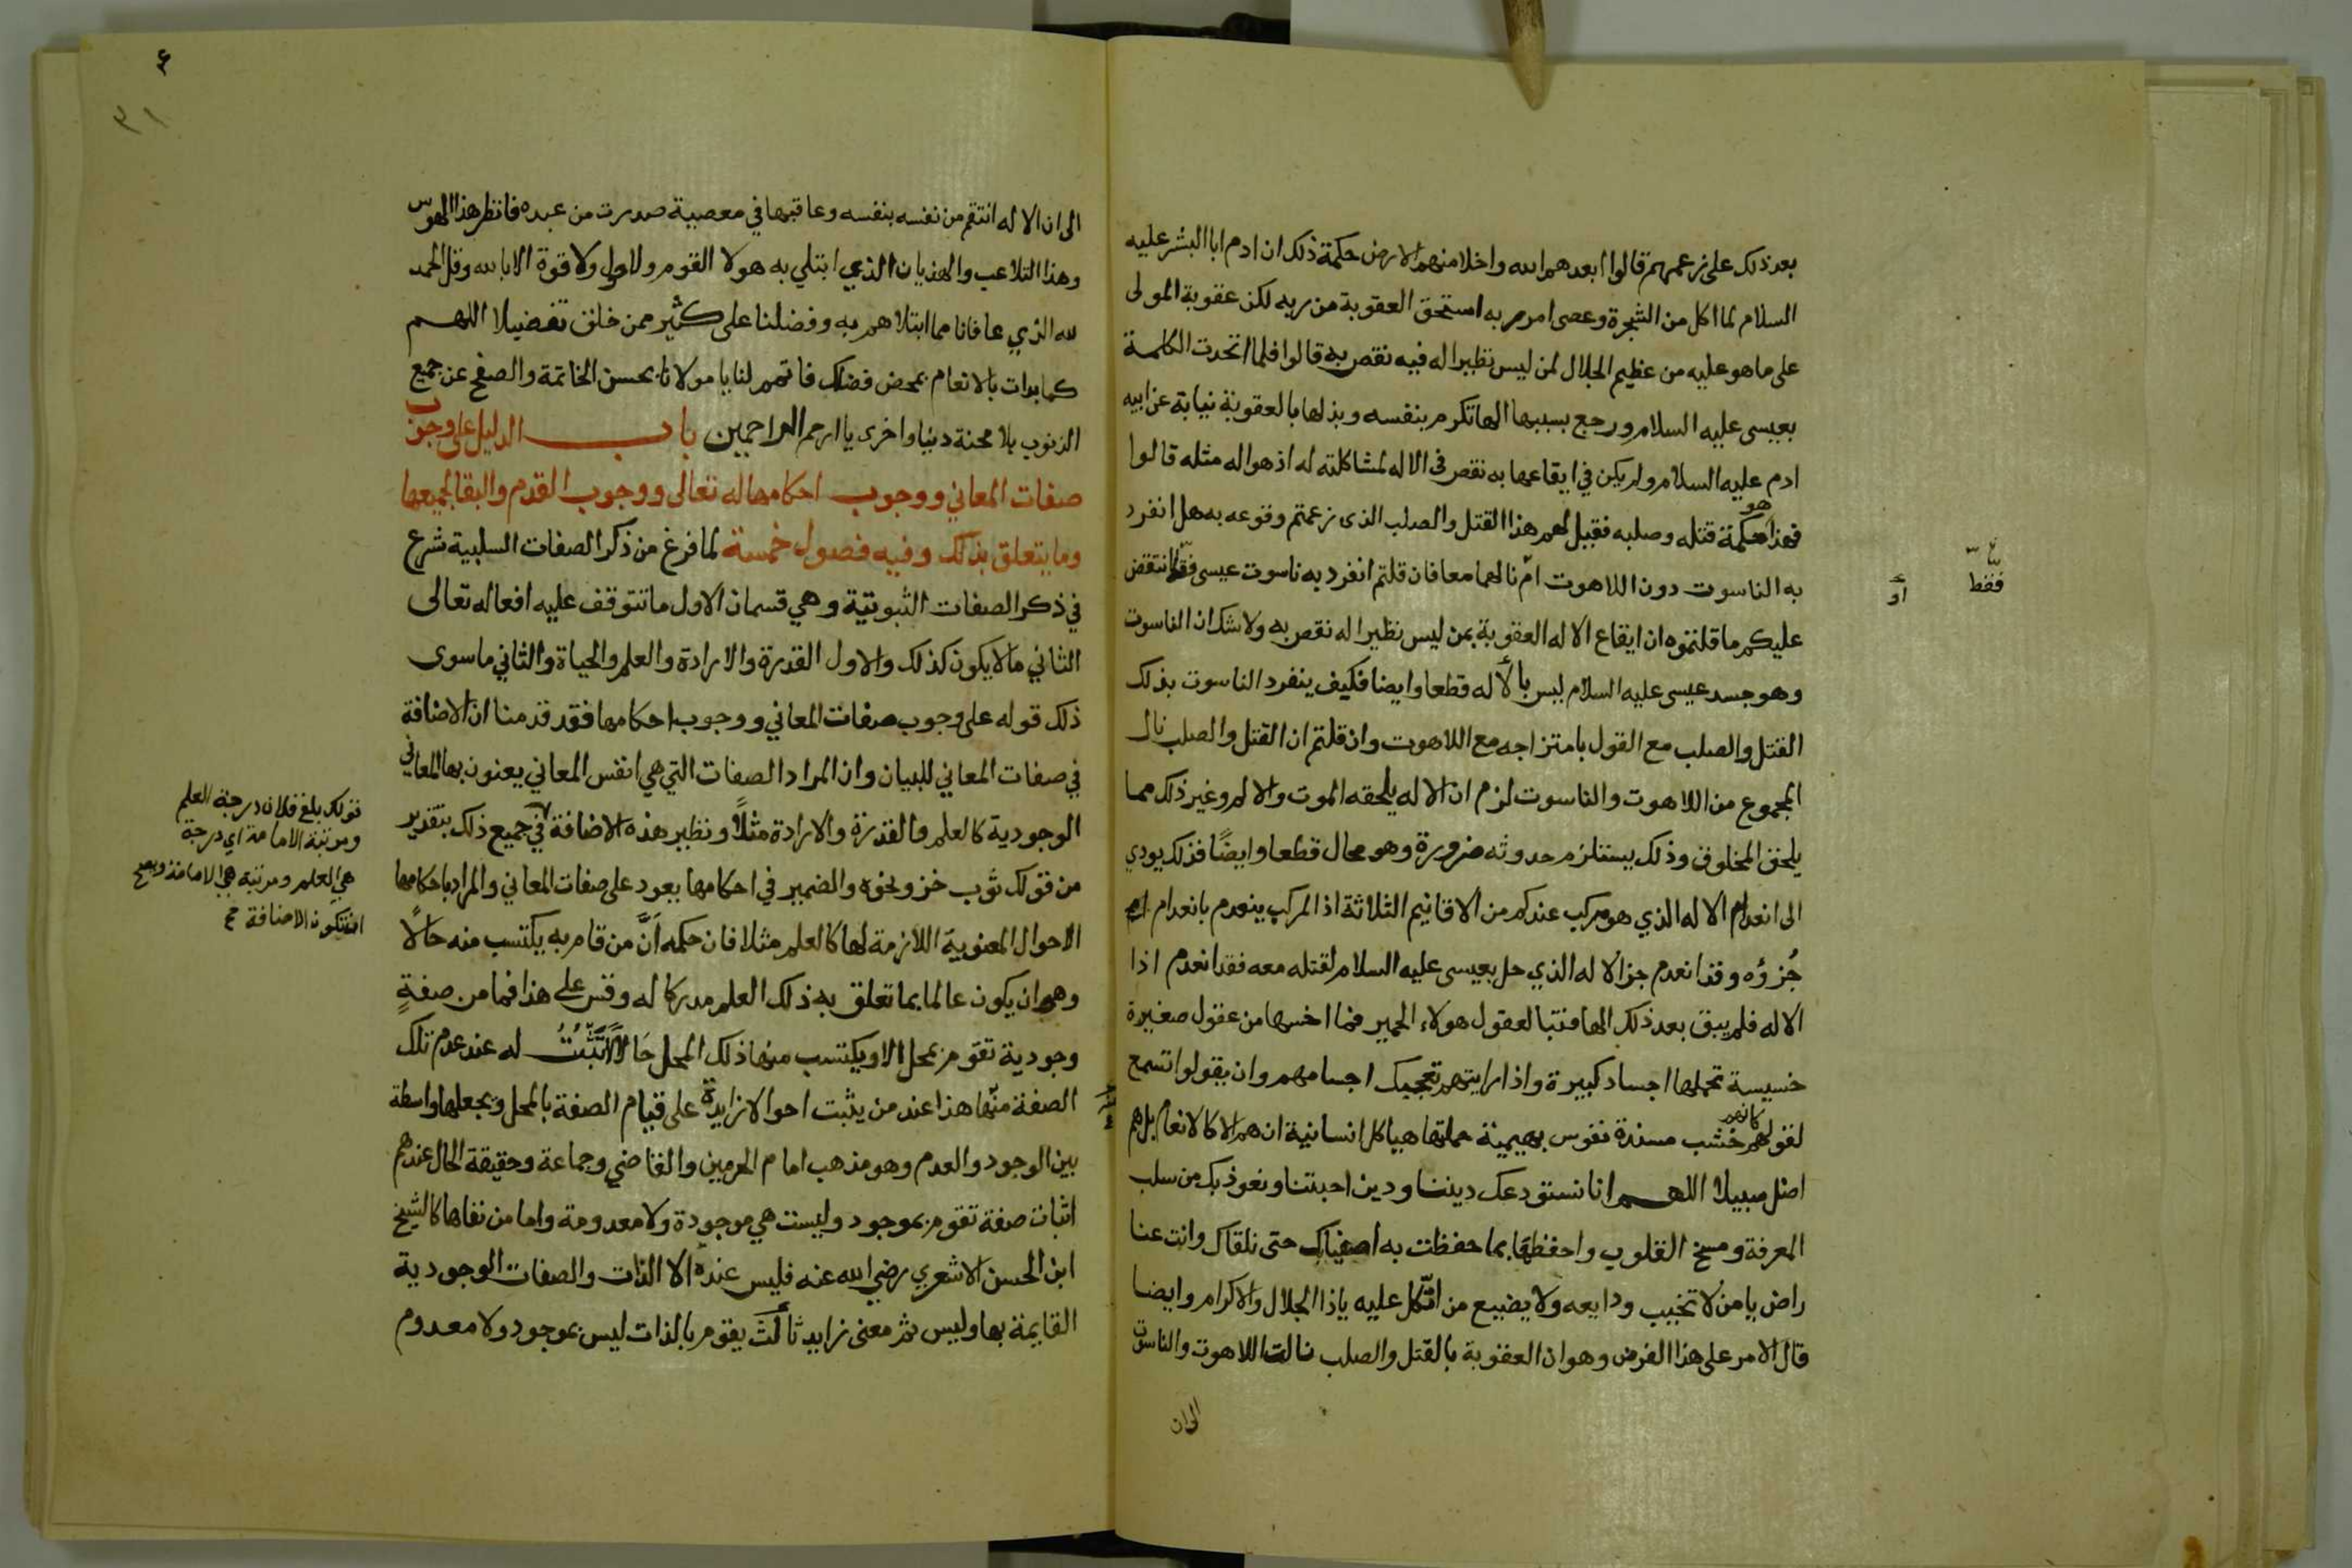 بعد ذلك على زعمهم قالوا ابعدهم الله واخلا منهم الارض حكمة ذلك ان ادم ابا البشر عليه
السلام لما اكل من الشجرة وعصى امر ربه استحق العقوبة من ربه لكن عقوبة المولى
على ما هو عليه من عظيم الجلال لمن ليس نظيرا له فيه نقص به قالوا فلما اتحدت الكلمة
بعيسى عليه السلام ورجع بسببها الها تكرم بنفسه وبذلها بالعقوبة نيابة عن ابيه
ادم عليه السلام ولم يكن في ايقاعها به نقص في الاله لمشاكلته له اذ هو اله مثله قالوا
فهذا هو حكمة قتله وصلبه فقيل لهم هذا القتل والصلب الذى زعمتم وقوعه به هل انفرد
به الناسوت دون اللاهوت ام نالهما معا فان قلتم انفرد به ناسوت عيسى فقط انتقض
عليكم ما قلتموه ان ايقاع الاله العقوبة بمن ليس نظيرا له نقص به ولا شك ان الناسوت
وهو جسد عيسى عليه السلام ليس بالاله قطعا وايضا فكيف ينفرد الناسوت بذلك
القتل والصلب مع القول بامتزاجه مع اللاهوت وان قلتم ان القتل والصلب نال
المجموع من اللاهوت والناسوت لزم ان الاله يلحقه الموت والالم وغير ذلك مما
يلحق المخلوق وذلك يستلزم حدوثه ضرورة وهو محال قطعا وايضًا فذلك يودي
الى انعدام الاله الذي هو مركب عندكم من الاقانيم الثلاثة اذ المركب ينعدم بانعدام
جُزؤه وقد انعدم جز الاله الذي حل بعيسى عليه السلام لقتله معه فقد انعدم اذا
الاله فلم يبق بعد ذلك الها فتبا لعقول هولاء الحمير فما اخسها من عقول صغيرة
خسيسة تحملها اجساد كبيرة واذا رايتهم تعجبك اجسامهم وان يقولوا تسمع
لقولهم كانهم خشب مسندة نفوس بهيمية حملتها هياكل انسانية ان هم الا كالانعام بل هم
اضل سبيلا اللهم انا نستودعك ديننا ودين احبتنا ونعوذ بك من سلب
المعرفة ومسخ القلوب واحفظها بما حفظت به اصفياك حتى نلقاك وانت عنا
راض يا من لا تخيب ودايعه ولا يضيع من اتّكل عليه ياذا الجلال والاكرام وايضا
قال الامر على هذا الفرض وهو ان العقوبة بالقتل والصلب نالت اللاهوت والناسوت
الى ان
فقط
او
٣١
الى ان الاله انتقم من نفسه بنفسه وعاقبها في معصية صدرت من عبده فانظر هذا الهوس
وهذا التلاعب والهذيان الذي ابتلي به هولا القوم ولا حول ولا قوة الا بالله وقل الحمد
لله الذي عافانا مما ابتلاهم به وفضلنا على كثير ممن خلق تفضيلا اللهم
كما بدات بالانعام بمحض فضلك فاتمم لنا يا مولانا بحسن الخاتمة والصفح عن جميع
الذنوب بلا محنة دنيا واخرى يا ارحم الراحمين باب الدليل على وجوب
صفات المعاني ووجوب احكامها له تعالى ووجوب القدم والبقا لجميعها
وما يتعلق بذلك وفيه فصول خمسة لما فرغ من ذكر الصفات السلبية شرع
في ذكر الصفات الثبوتية وهي قسمان الاول ما تتوقف عليه افعاله تعالى
الثاني ما لا يكون كذلك والاول القدرة والارادة والعلم والحياة والثاني ما سوى
ذلك قوله على وجوب صفات المعاني ووجوب احكامها فقد قدمنا ان الاضافة
في صفات المعاني للبيان وان المراد الصفات التي هي انفس المعاني يعنون بها المعاني
الوجودية كالعلم والقدرة والارادة مثلًا ونظير هذه الاضافة في جميع ذلك بتقدير
من قولك ثوب خز ونحوه والضمير في احكامها يعود على صفات المعاني والمراد باحكامها
الاحوال المعنوية اللازمة لها كالعلم مثلا فان حكمه اَنَّ من قام به يكتسب منه حالًا
وهو ان يكون عالما بما تعلق به ذلك العلم مدركا له وقس على هذا فما من صفةٍ
وجودية تقوم بمحل الا ويكتسب منها ذلك المحل حَالًا لا تَثْبُتُ له عند عدم تلك
الصفة منها هذا عند من يثبت احوالا زايدة على قيام الصفة بالمحل ويجعلها واسطة
بين الوجود والعدم وهو مذهب امام الحرمين والقاضي وجماعة وحقيقة الحال عندهم
اثبات صفة تقوم بموجود وليست هي موجودة ولا معدومة واما من نفاها كالشيخ
ابن الحسن الاشعري رضي الله عنه فليس عنده الا الذات والصفات الوجودية
القايمة بها وليس ثم معنى زايد ثالث يقوم بالذات ليس بموجود ولا معدوم
قولك بلغ فلان درجة العلم
ومرتبة الامامة اي درجة
هي العلم ومرتبة هي الامامة ويصح
ان تكون الاضافة